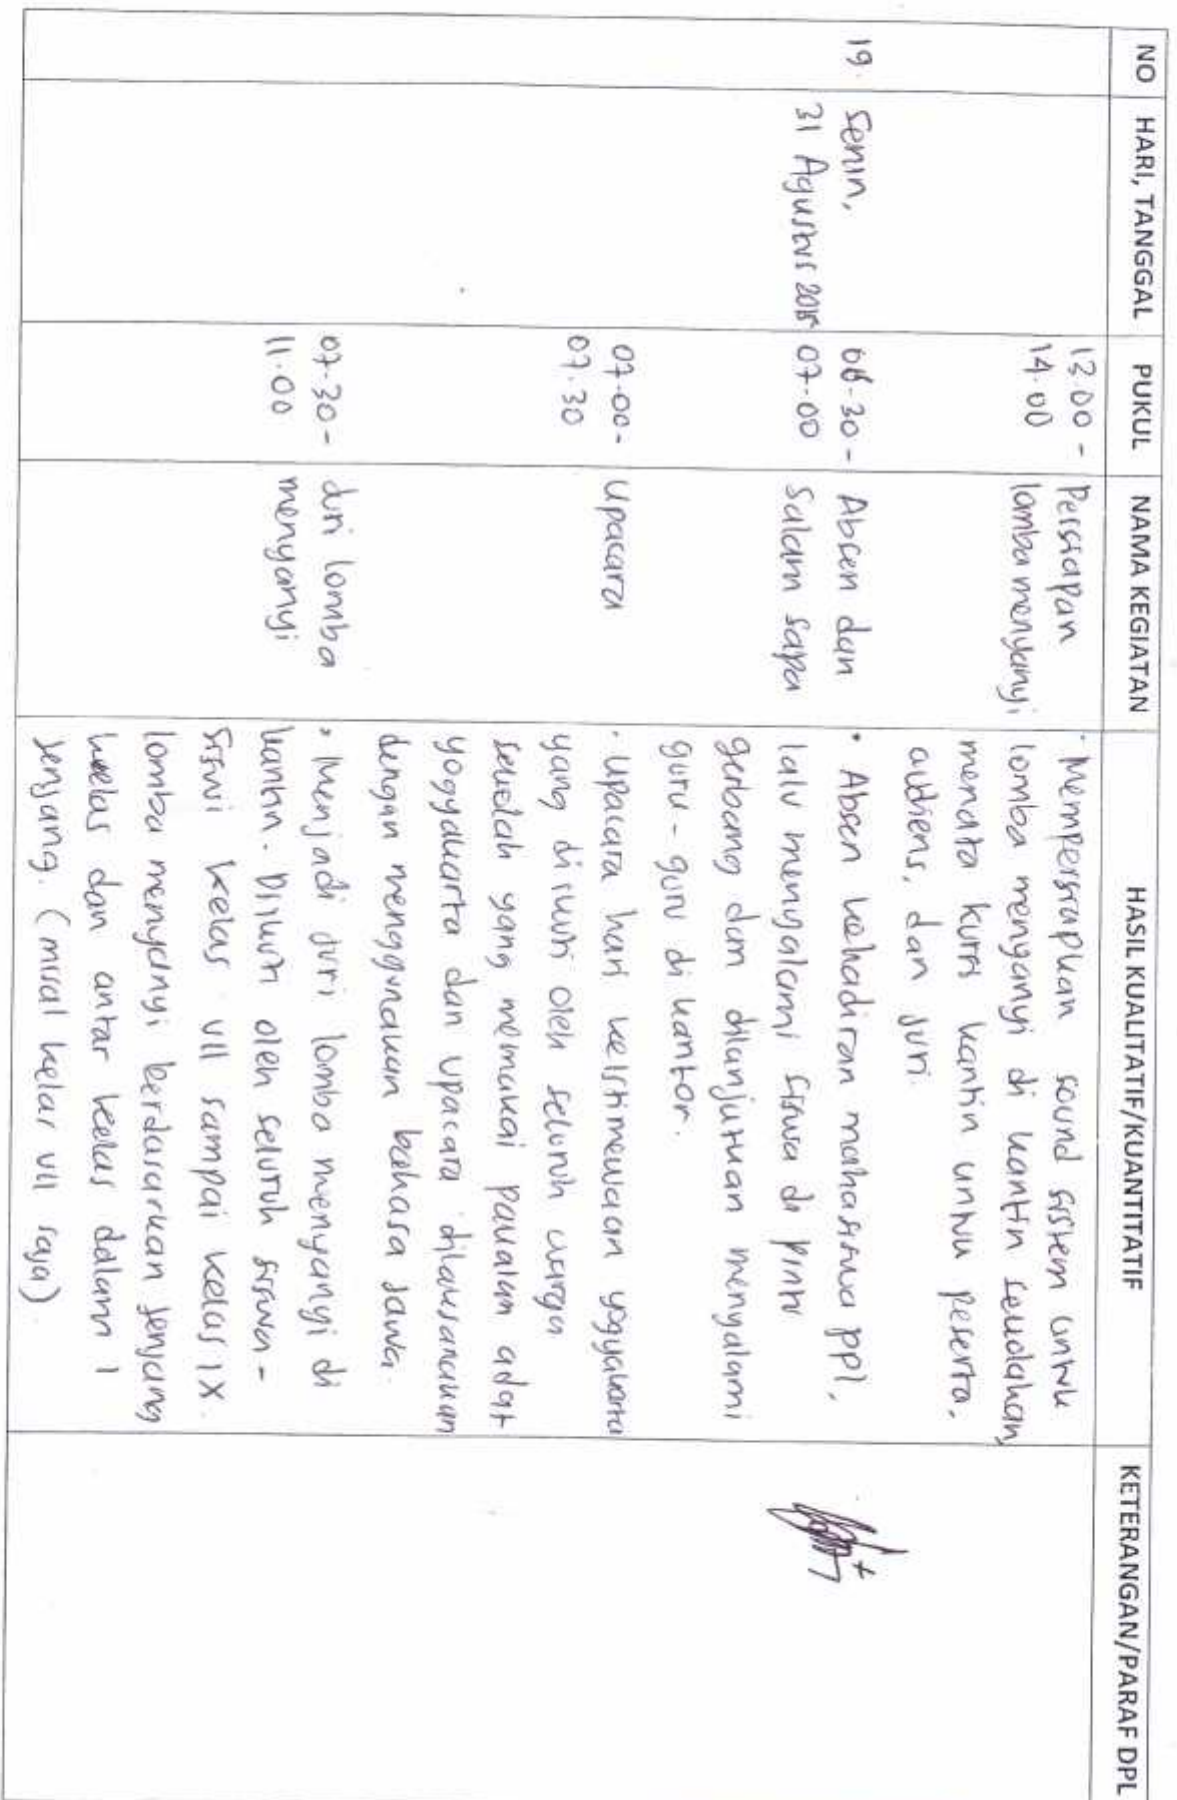 NO HARI, TANGGAL PUKUL NAMA KEGIATAN HASIL KUALITATIF/KUANTITATIF KETERANGAN/PARAF DPL
13.00 - Persiapan · Mempersiapkan sound sistem untuk
14.00 lomba menyanyi lomba menyanyi di kantin sekaligus
menata kursi kantin untuk peserta,
audiens, dan juri.
19. Senin, 06.30 - Absen dan • Absen kehadiran mahasiswa ppl,
31 Agustus 2015 07.00 salam sapa lalu menyalami siswa di pintu
gerbang dan dilanjutkan menyalami
guru - guru di kantor.
07.00 - upacara · upacara hari keistimewaan yogyakarta
07.30 yang diikuti oleh seluruh warga
sekolah yang memakai pakaian adat
yogyakarta dan upacara dilaksanakan
dengan menggunakan bahasa jawa.
07.30 - Juri lomba • Menjadi juri lomba menyanyi di
11.00 menyanyi kantin. Diikuti oleh seluruh siswa -
siswi kelas VII sampai kelas IX.
lomba menyanyi berdasarkan jenjang
kelas dan antar kelas dalam 1
jenjang. (misal kelas VII saja)